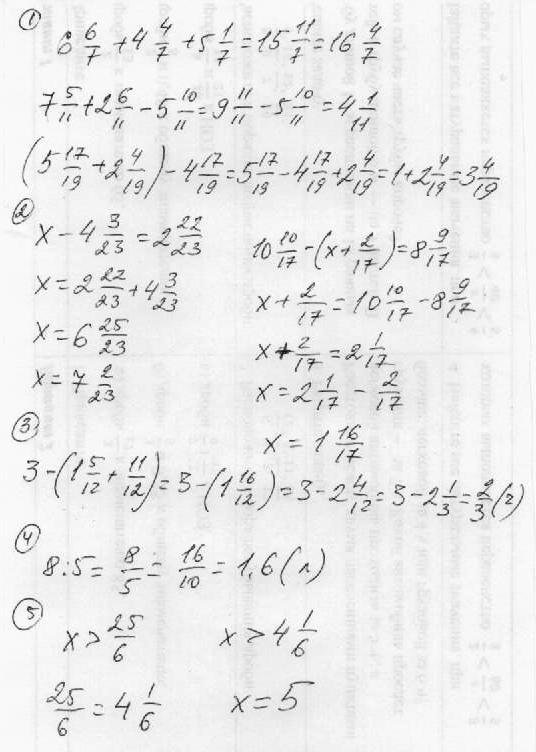 ①
6 6/7 + 4 4/7 + 5 1/7 = 15 11/7 = 16 4/7
7 5/11 + 2 6/11 - 5 10/11 = 9 11/11 - 5 10/11 = 4 1/11
(5 17/19 + 2 4/19) - 4 17/19 = 5 17/19 - 4 17/19 + 2 4/19 = 1 + 2 4/19 = 3 4/19
②
x - 4 3/23 = 2 22/23
x = 2 22/23 + 4 3/23
x = 6 25/23
x = 7 2/23
10 10/17 - (x + 2/17) = 8 9/17
x + 2/17 = 10 10/17 - 8 9/17
x + 2/17 = 2 1/17
x = 2 1/17 - 2/17
x = 1 16/17
③
3 - (1 5/12 + 11/12) = 3 - (1 16/12) = 3 - 2 4/12 = 3 - 2 1/3 = 2/3 (г)
④
8 : 5 = 8/5 = 16/10 = 1,6 (л)
⑤
x > 25/6
25/6 = 4 1/6
x > 4 1/6
x = 5